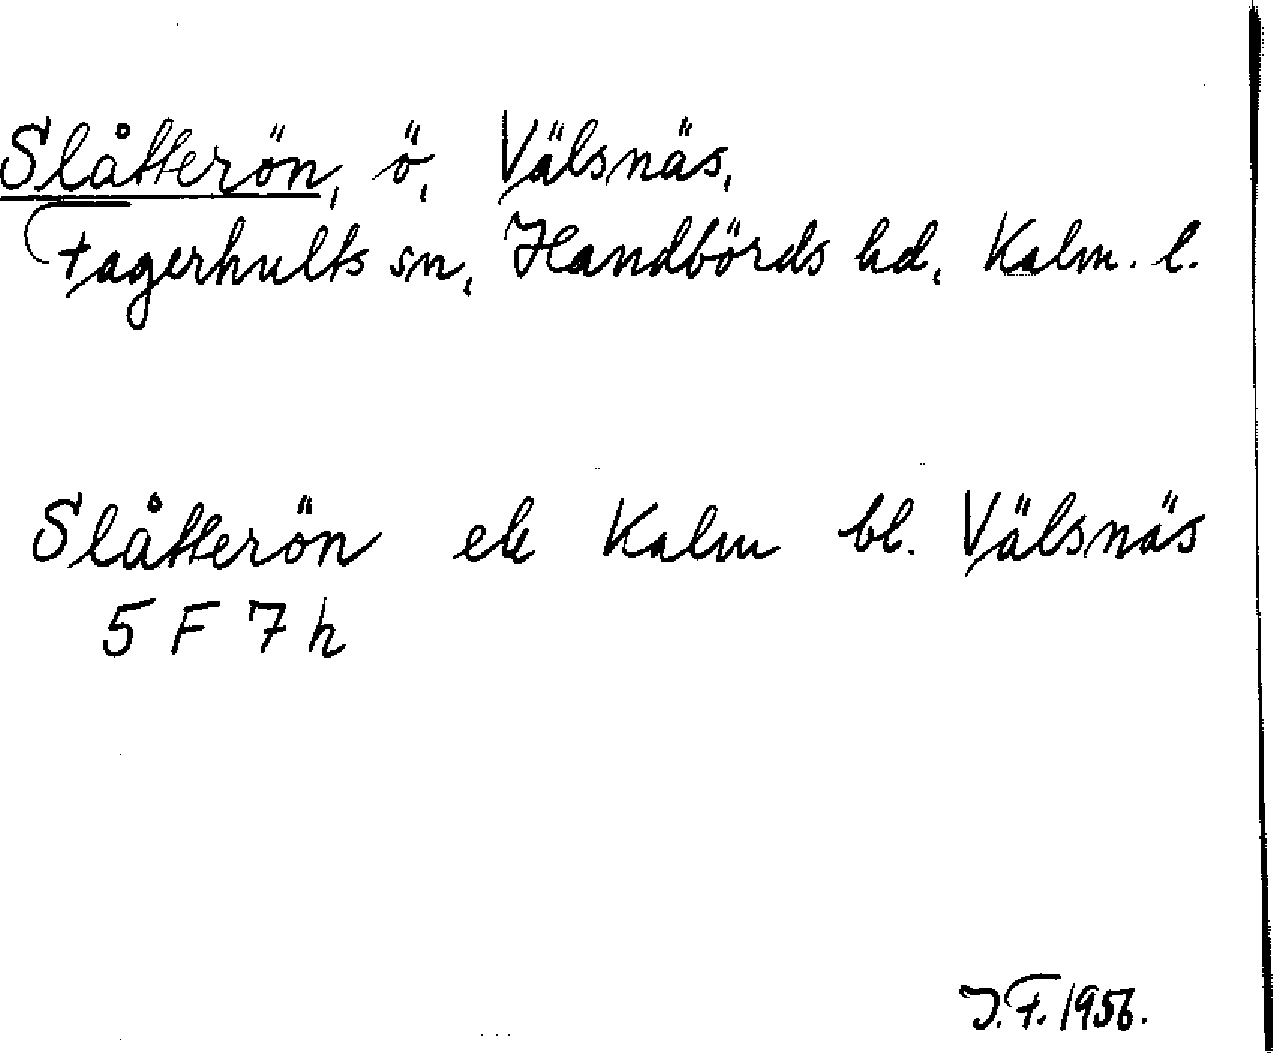 Slåtterön, ö, Välsnäs,
Fagerhults sn, Handbörds hd, Kalm. l.
Slåtterön ek Kalm bl. Välsnäs
5 F 7 h
J.F. 1956.